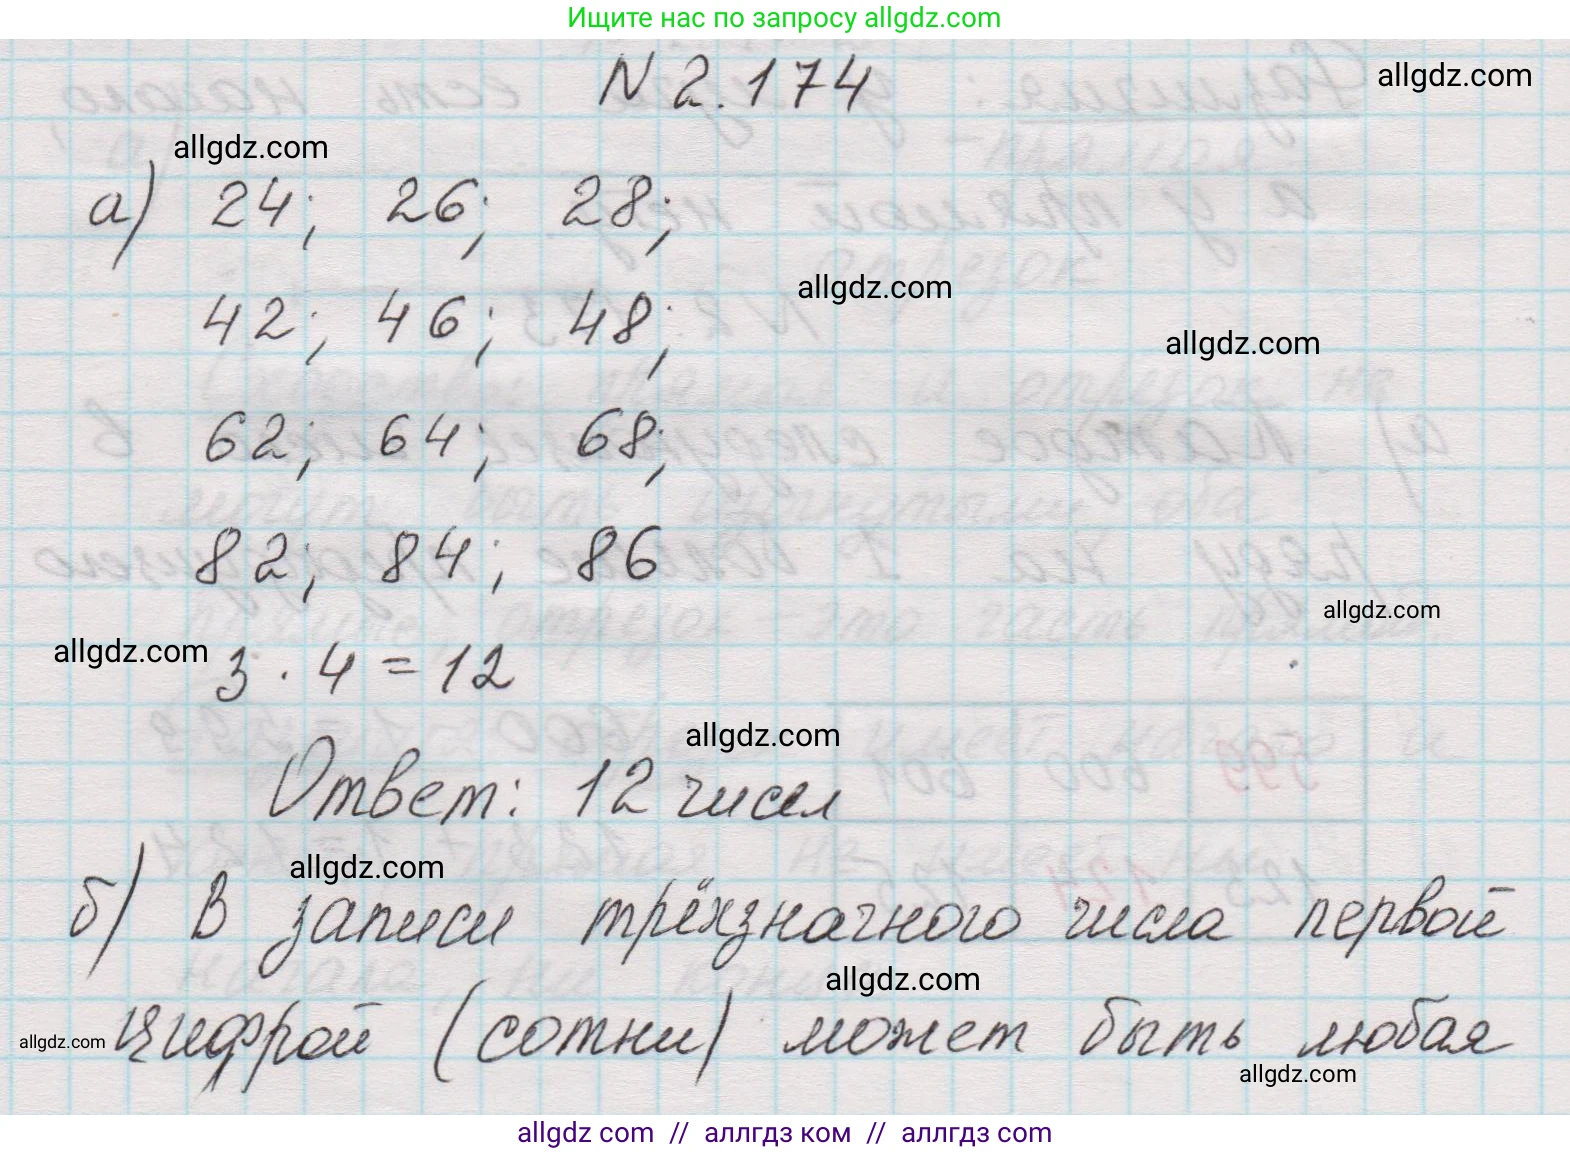 Ищите нас по запросу allgdz.com
N 2.174
allgdz.com
allgdz.com
а) 24; 26; 28;
allgdz.com
42; 46; 48;
allgdz.com
62; 64; 68;
82; 84; 86
allgdz.com
allgdz.com
3 · 4 = 12
allgdz.com
Ответ: 12 чисел
allgdz.com
б) В записи трёхзначного числа первой
allgdz.com
allgdz.com цифрой (сотни) может быть любая
allgdz.com
allgdz com // аллгдз ком // аллгдз com